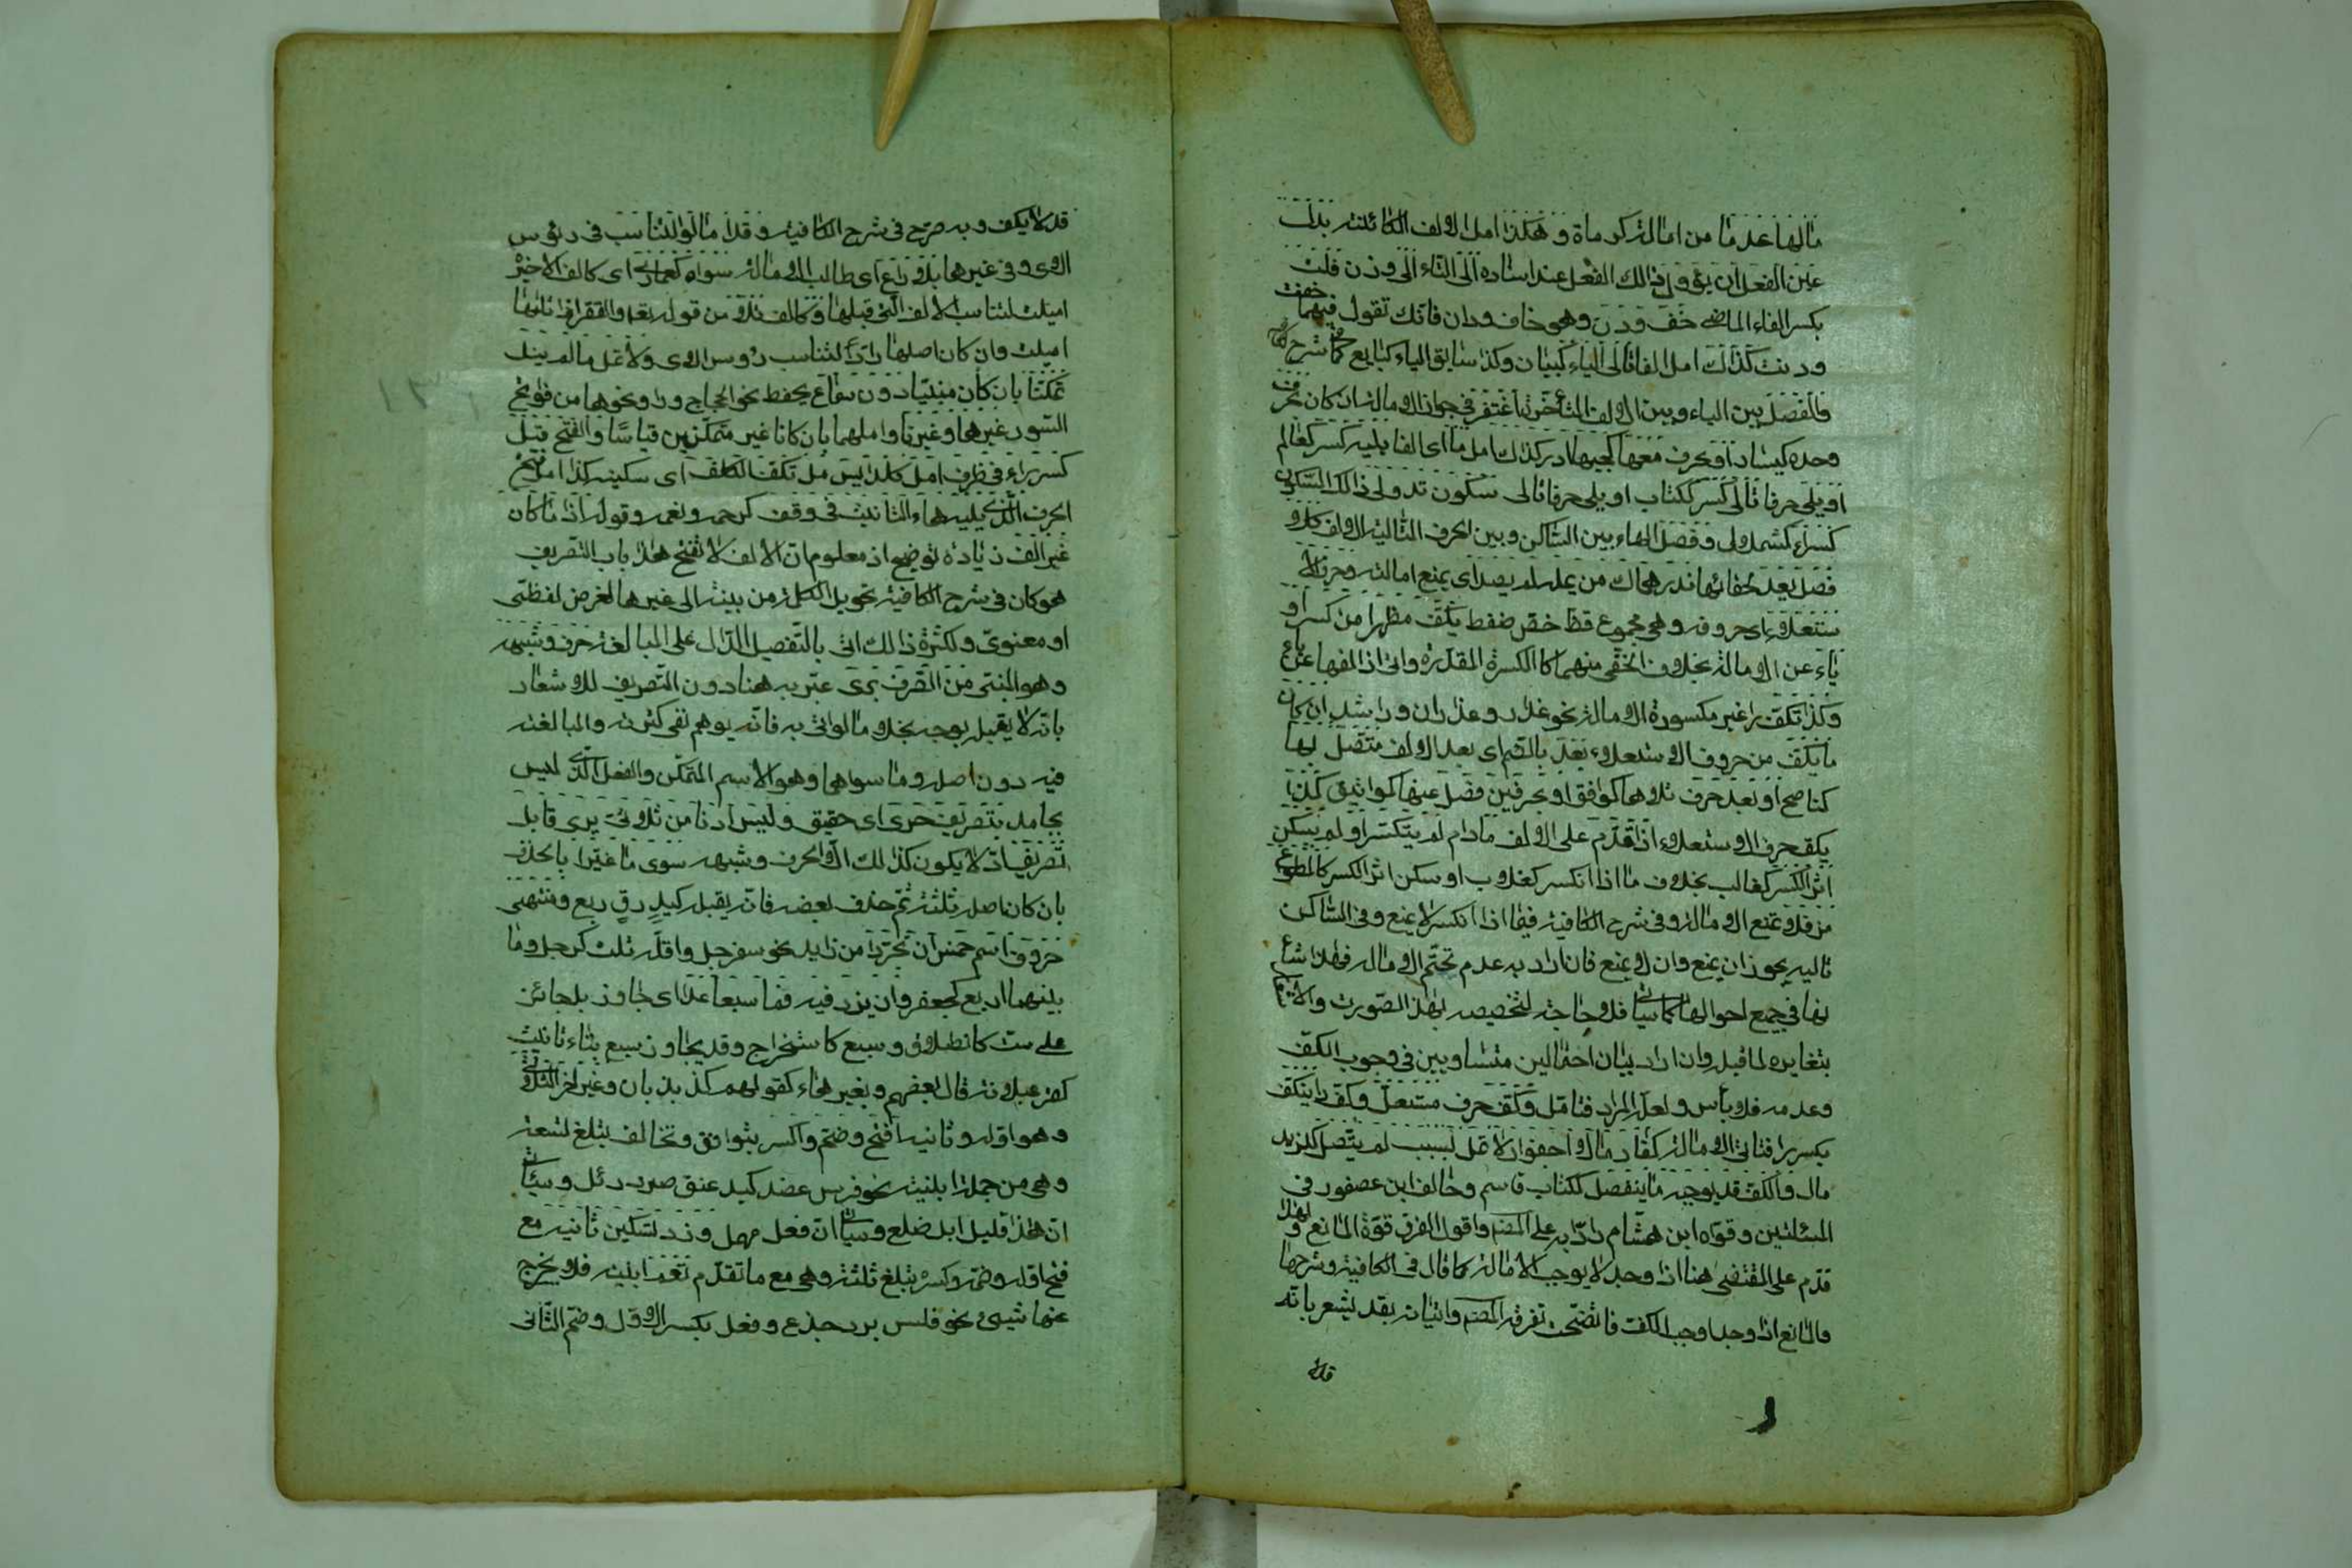 مالها عدما من امالة كرماة و هكذا امل الالف الكائنة بدل
عين الفعل ان يؤول ذالك الفعل عند اسناده الى التاء الى وزن فلت
بكسر الفاء الماضى خف و دن وهو خاف و دان فانك تقول فيهما خفت
ودنت كذاك امل الفا تالى الياء كبيان وكذا سابق الياء كبايع كما فى شرح الكافية
والفصل بين الياء و بين الالف المتأخرة اغتفر فى جواز الامالة ان كان بحرف
وحده كيسار او بحرف معها كجيبها ادر كذاك امل ما اى الفا يليه كسر كعالم
او يلى حرفا تالى كسر ككتاب او يلى حرفا تالى سكون قد ولى ذالك السكون
كسرا كشملال و فصل الهاء بين الساكن و بين الحرف التالية الالف كلا
فصل يعد لخفائها فدرهماك من يمله لم يصد اى يمنع امالته وحرف الا
ستعلاء اى حروفه وهى مجموع قظ خص ضغط يكف مظهرا من كسر او
ياء عن الامالة بخلاف الخفى منهما كالكسرة المقدرة والى اذ المفها عن ياء
وكذا تكف را غير مكسورة الامالة نحو عذار و عذاران و راشد ان كان
ما يكف من حروف الاستعلاء بعد بالضم اى بعد الالف متصل بها
كناصح او بعد حرف تلاها كموافق او بحرفين فصل عنها كمواثيق كذا
يكف حرف الاستعلاء اذا قدم على الالف مادام لم ينكسر او لم يسكن
اثر الكسر كغالب بخلاف ما اذا انكسر كغلاب او سكن اثر الكسر كالمطواع
مز فلا تمنع الامالة و فى شرح الكافية فيما اذا انكسر لا يمنع و فى الساكن
تاليه يجوز ان يمنع وان لا يمنع فان اراد به عدم تحتم الامالة فهذا شاع
لها فى جميع احوالها كما سياتى فلا حاجة لتخصيصه بهذه الصورت والا
بتغايره لما قبله وان اراد بيان احتمالين متساويين فى وجوب الكف
وعدمه فلا بأس و لعله المراد فتامل و كف حرف مستعل وكف را ينكف
بكسر را فتاتى الامالة كغارما لا اجفو او لا تمل لسبب لم يتصل كلزيد
مال والكف قد يوجبه ما ينفصل ككتاب قاسم وخالف ابن عصفور فى
المسئلتين و قواه ابن هشام رادا به على المصنف واقول الفرق قوة المانع و لهذا
قدم على المقتضى هنا اذا وجد لا يوجب الامالة كما قال فى الكافية وشرحها
والمانع اذا وجد وجب الكف فاتضحت تفرقة المصنف واتيانه بقد يشعر بانه
قد لا
قد لا يكف و به صرح فى شرح الكافية و قد امالوا لتناسب فى رؤس
الاى و فى غيرها بلا داع اى طالب الامالة سواه كعمادا اى كالف الاخير
اميلت لتناسب الالف التى قبلها و كالف تلا من قوله تعه والقمر اذا تليها
اميلت وان كان اصلها واوا لتناسب رؤس الاى ولا تمل مالم ينل
تمكنا بان كان مبنيا دون سماع يحفظ نحو الحجاج ورا ونحوها من فواتح
السور غيرها وغيرنا واملهما بان كانا غير متمكنين قياسا والفتح قبل
كسر راء فى طرف امل كللايسر مل تكف الكلف اى سكينة كذا امل فتح
الحرف الذى يليه هاء التانيث فى وقف كرحمه ونعمه وقوله اذا ما كان
غير الف زيادة توضيح اذ معلوم ان الالف لا تفتح هذا باب التصريف
هو كان فى شرح الكافية تحويل الكلمة من بينة الى غيرها لغرض لفظى
او معنوى و لكثرة ذالك اتى بالتفعيل الدال على المبالغة حرف وشبهه
وهو المبنى من الصرف برى عبر به هنا دون التصريف للاشعار
بانه لا يقبل بوجه بخلاف مالو اتى به فانه يوهم نفى كثرته والمبالغة
فيه دون اصله وما سواهما وهو الاسم المتمكن والفعل الذى ليس
بجامد بتصريف حرى اى حقيق و ليس ادنا من ثلاثى يرى قابل
تصريف اذ لا يكون كذالك الا الحرف و شبهه سوى ما غيرا بالحذف
بان كان اصله ثلثة ثم حذف بعضه فانه يقبله كيد رق ربع و منتهى
حروف اسم خمس ان تجردا من زايد نحو سفرجل واقله ثلث كرجل وما
بينهما اربع كجعفر وان يزد فيه فما سبعا عدا اى جاوز بل جائز
على ست كانطلاق وسبع كاستخراج وقد يجاوز سبع بتاء تانيث
كقرعبلانة قال بعضهم و بغير هاء كقولهم كذبذبان وغير اخر الثلاثى
وهو اوله و ثانيه افتح و ضم واكسر بتوافق و تخالف يبلغ تسعة
وهى من جملة ابنية نحو فرس عضد كبد عنق صرد دئل و سياتى
ان هذا قليل ابل ضلع و سياتى ان فعل مهمل و زد تسكين ثانيه مع
فتح اوله وضمه وكسره يبلغ ثلثة وهى مع ما تقدم تعم ابنية فلا يخرج
عنها شيئ نحو فلس برد جذع و فعل بكسر الاول وضم الثانى